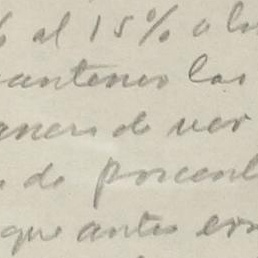 % al 15% a los
mantener las
manera de ver
s de porcent
que antes era